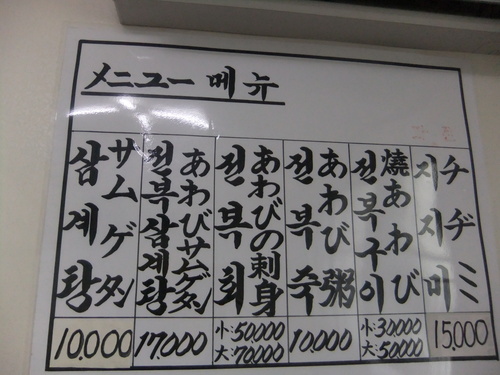 メニュー 메뉴
지지미
チヂミ
15,000
전복구이
燒あわび
小:30000
大:50000
전복죽
あわび粥
10,000
전복회
あわびの刺身
小:50000
大:70000
전복삼계탕
あわびサムゲタン
17000
삼계탕
サムゲタン
10,000